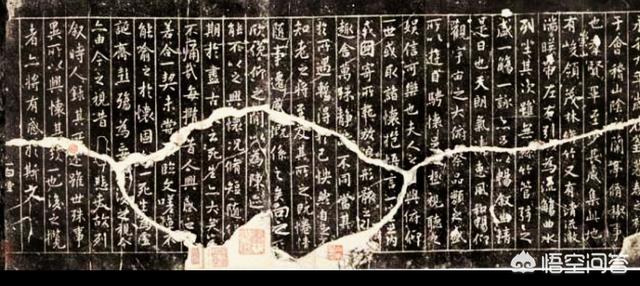 于會稽山陰之蘭亭脩稧事
也羣賢畢至少長咸集此地
有峻領茂林脩竹又有清流激
湍暎帶左右引以為流觴曲水
列坐其次雖無絲竹管弦之
盛一觴一詠亦足以暢敘幽情
是日也天朗氣清惠風和暢仰
觀宇宙之大俯察品類之盛
所以遊目騁懷足以極視聽之
娛信可樂也夫人之相與俯仰
一世或取諸懷抱悟言一室之內
或因寄所託放浪形骸之外
趣舍萬殊靜不同當其
於所遇暫得於己快然自足
知老之將至及其所之既惓情
隨事遷感慨係之矣向之
欣俛仰之間以為陳迹
能不以之興懷況脩短隨化
期於盡古人云死生亦大矣
不痛哉每攬昔人興感之
若合一契未嘗不臨文嗟悼不
能喻之於懷固知一死生為虛
誕齊彭殤為妄作後之視今
亦由今之視昔悲夫故列
敘時人錄其所述雖世殊事
異所以興懷其致一也後之攬
者亦將有感於斯文
悟空问答